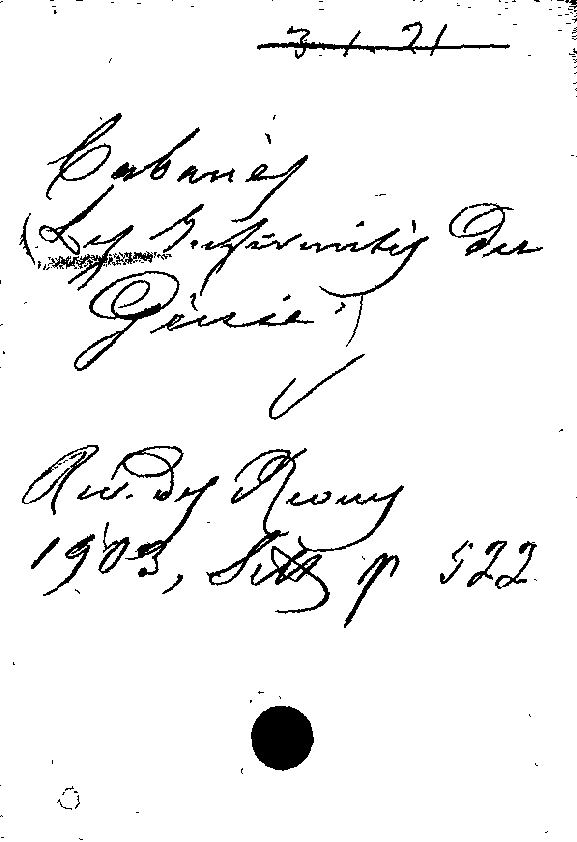 3. 1. 21
Cabanès
(Les Infirmités du
Génie)
Rev. des Revues
1903, p 522